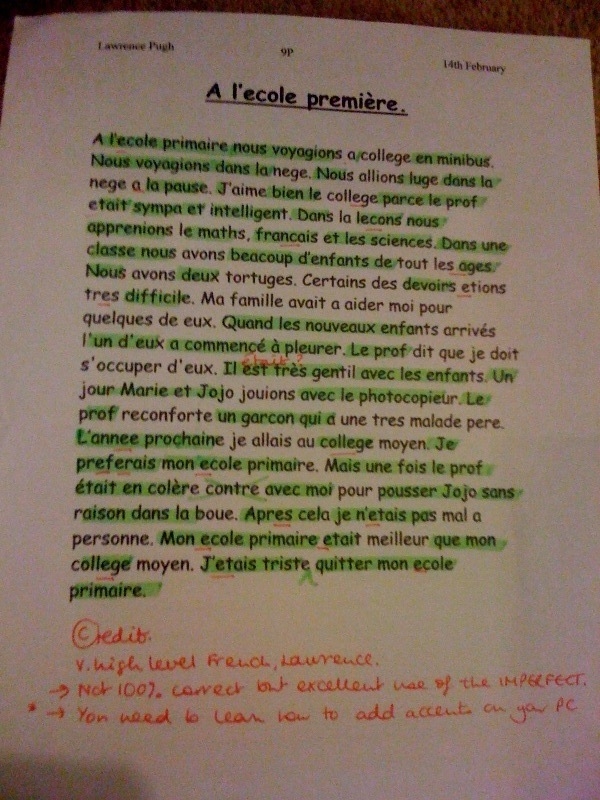 Lawrence Pugh
9P
14th February
A l'ecole première.
A l'ecole primaire nous voyagions a college en minibus.
Nous voyagions dans la nege. Nous allions luge dans la
nege a la pause. J'aime bien le college parce le prof
etait sympa et intelligent. Dans la lecons nous
apprenions le maths, francais et les sciences. Dans une
classe nous avons beaucoup d'enfants de tout les ages.
Nous avons deux tortuges. Certains des devoirs etions
tres difficile. Ma famille avait a aider moi pour
quelques de eux. Quand les nouveaux enfants arrivés
l'un d'eux a commencé à pleurer. Le prof dit que je doit
était?
s'occuper d'eux. Il est très gentil avec les enfants. Un
jour Marie et Jojo jouions avec le photocopieur. Le
prof reconforte un garcon qui a une tres malade pere.
L'annee prochaine je allais au college moyen. Je
preferais mon ecole primaire. Mais une fois le prof
était en colère contre avec moi pour pousser Jojo sans
raison dans la boue. Apres cela je n'etais pas mal a
personne. Mon ecole primaire etait meilleur que mon
college moyen. J'etais triste quitter mon ecole
primaire.
Credit.
V. high level French, Lawrence.
→ Not 100% correct but excellent use of the IMPERFECT.
* → You need to learn how to add accents on your PC